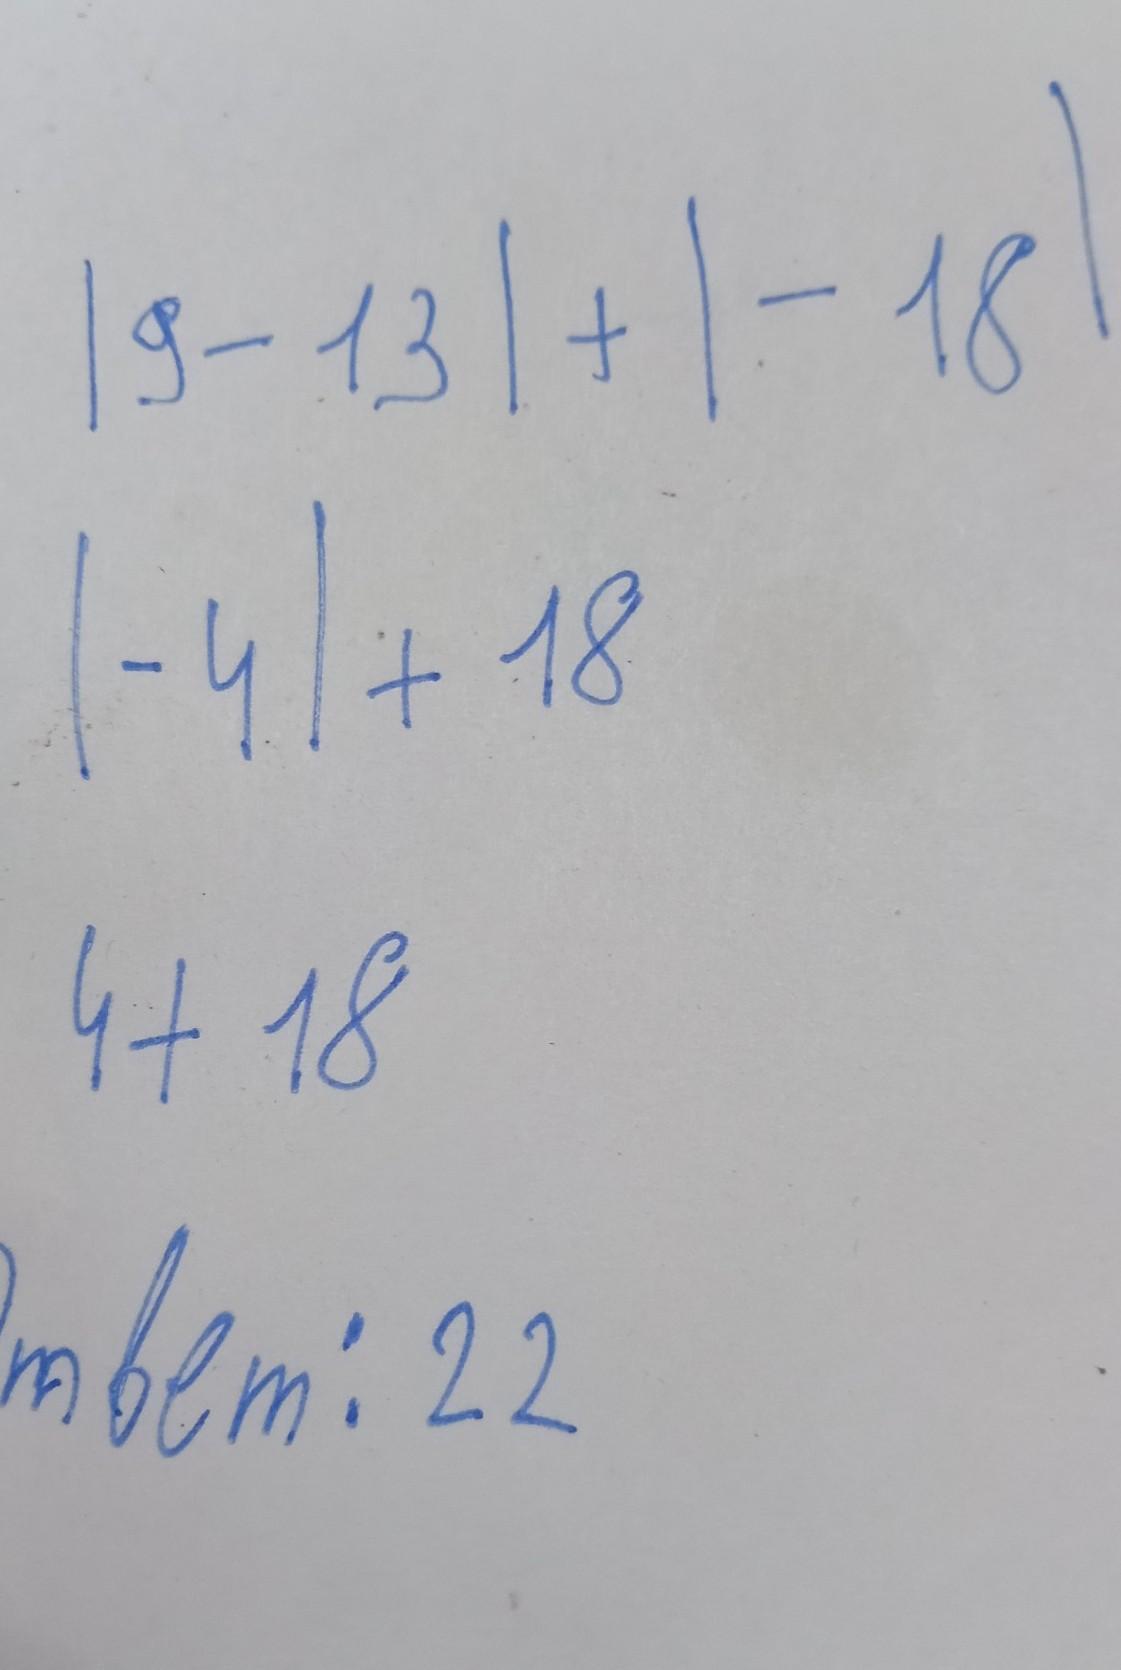 |9 - 13| + |- 18|
|- 4| + 18
4 + 18
Ответ: 22